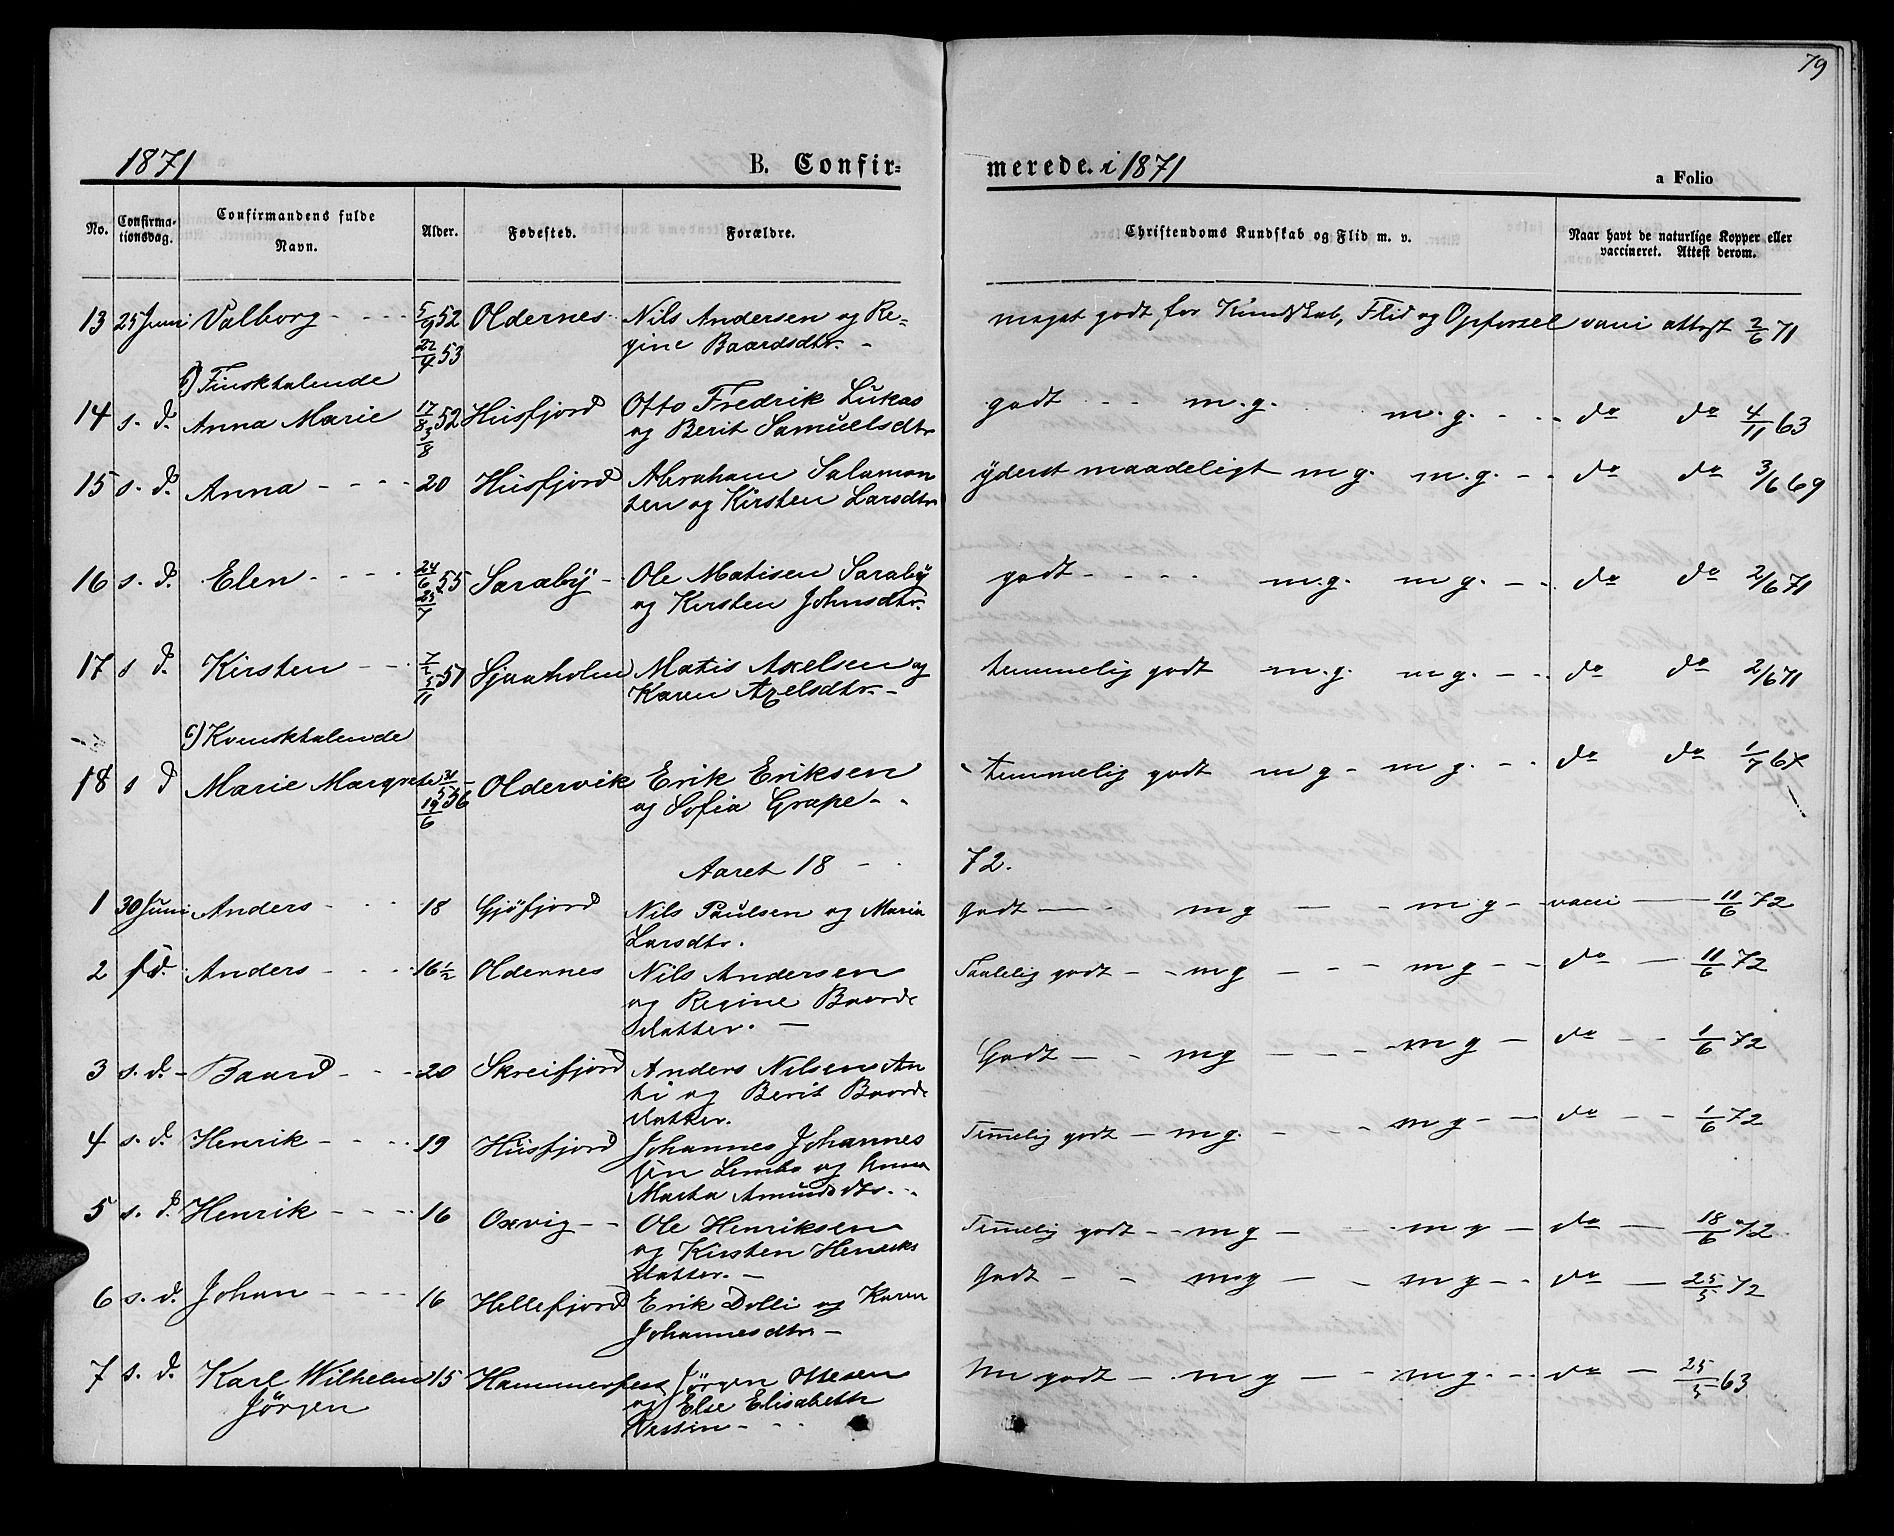 79
1871 B. Confir- merede. i 1871 a Folio
No. Confirma-tionsdag. Confirmandens fulde Navn. Alder. Fødested. Forældre. Christendoms Kundskab og Flid m. v. Naar havt de naturlige Kopper eller vaccineret. Attest derom.
13 25 Juni Valborg - - - - 5/9 52 Oldernes - Nils Andersen og Re= meget godt for Kundskab, Flid og Opførsel vacci attest 2/6 71
22/4 53 gine Baardsdtr. -
b) Finsktalende
14 s. d. Anna Marie 17/8 52 Husfjord Otto Fredrik Lukas godt - - m.g. m.g. - - do do 4/11 63
3/8 og Berit Samuelsdtr
15 s. d. Anna - - - - 20 Husfjord Abraham Salamon yderst maadeligt m g. m.g. - - do do 3/6 69
sen og Kirsten Larsdtr
16 s. d. Elen - - - - 24/6 55 Saraby - Ole Matisen Saraby godt - - - - m.g. m g. - - do do 2/6 71
25/7 og Kirsten Johnsdtr.
17 s d. Kirsten - - - 7/2 51 Sjaaholm Matis Axelsen og temmelig godt m.g. m g. - - do do 2/6 71
5/11 Karen Axelsdtr. -
c) Kvensktalende
18 s d Marie Margrete 31/5 56 Oldervik Erik Eriksen temmelig godt m g - m g. - - do do 1/7 67
19/6 og Sofia Grape - -
Aaret 18 - - 72.
1 30 Juni Anders - - - 18 Gjøfjord Nils Paulsen og Maria Godt - - m g - - m g - vacci - 11/6 72
Larsdtr.
2 s d. Anders - - - - 16 1/2 Oldernes Nils Andersen Taalelig godt - - m g - - - m g - - do - 11/6 72
og Regine Baards
datter. -
3 s. d. - Baard - - - - 20 Skreifjord Anders Nilsen An Godt - - m g - - - m g - do - - 1/6 72
ti og Berit Baards
datter.
4 s. d. Henrik - - - - 19 Husfjord Johannes Johannes Temelig godt - m g. - - - m g - - do - - 1/6 72
sen Lembo og Anna
Marta Amundsdtr. -
5 s. d. Henrik - - - - 16 Oxvig - - Ole Henriksen Temelig godt - - m g - - m g - do - 18/6 72
og Kirsten Henriks
datter. -
6 s. d. Johan - - - - 16 Hellefjord Erik Dolli og Karen Godt - - m g - - m g - - do - 25/5 72
Johannesdtr -
7 s. d. Karl Wilhelm 15 Hammerfest Jörgen Ottesen Me godt - m g - m g. - - do - 25/5 63
Jörgen og Else Elisabeth
- - -